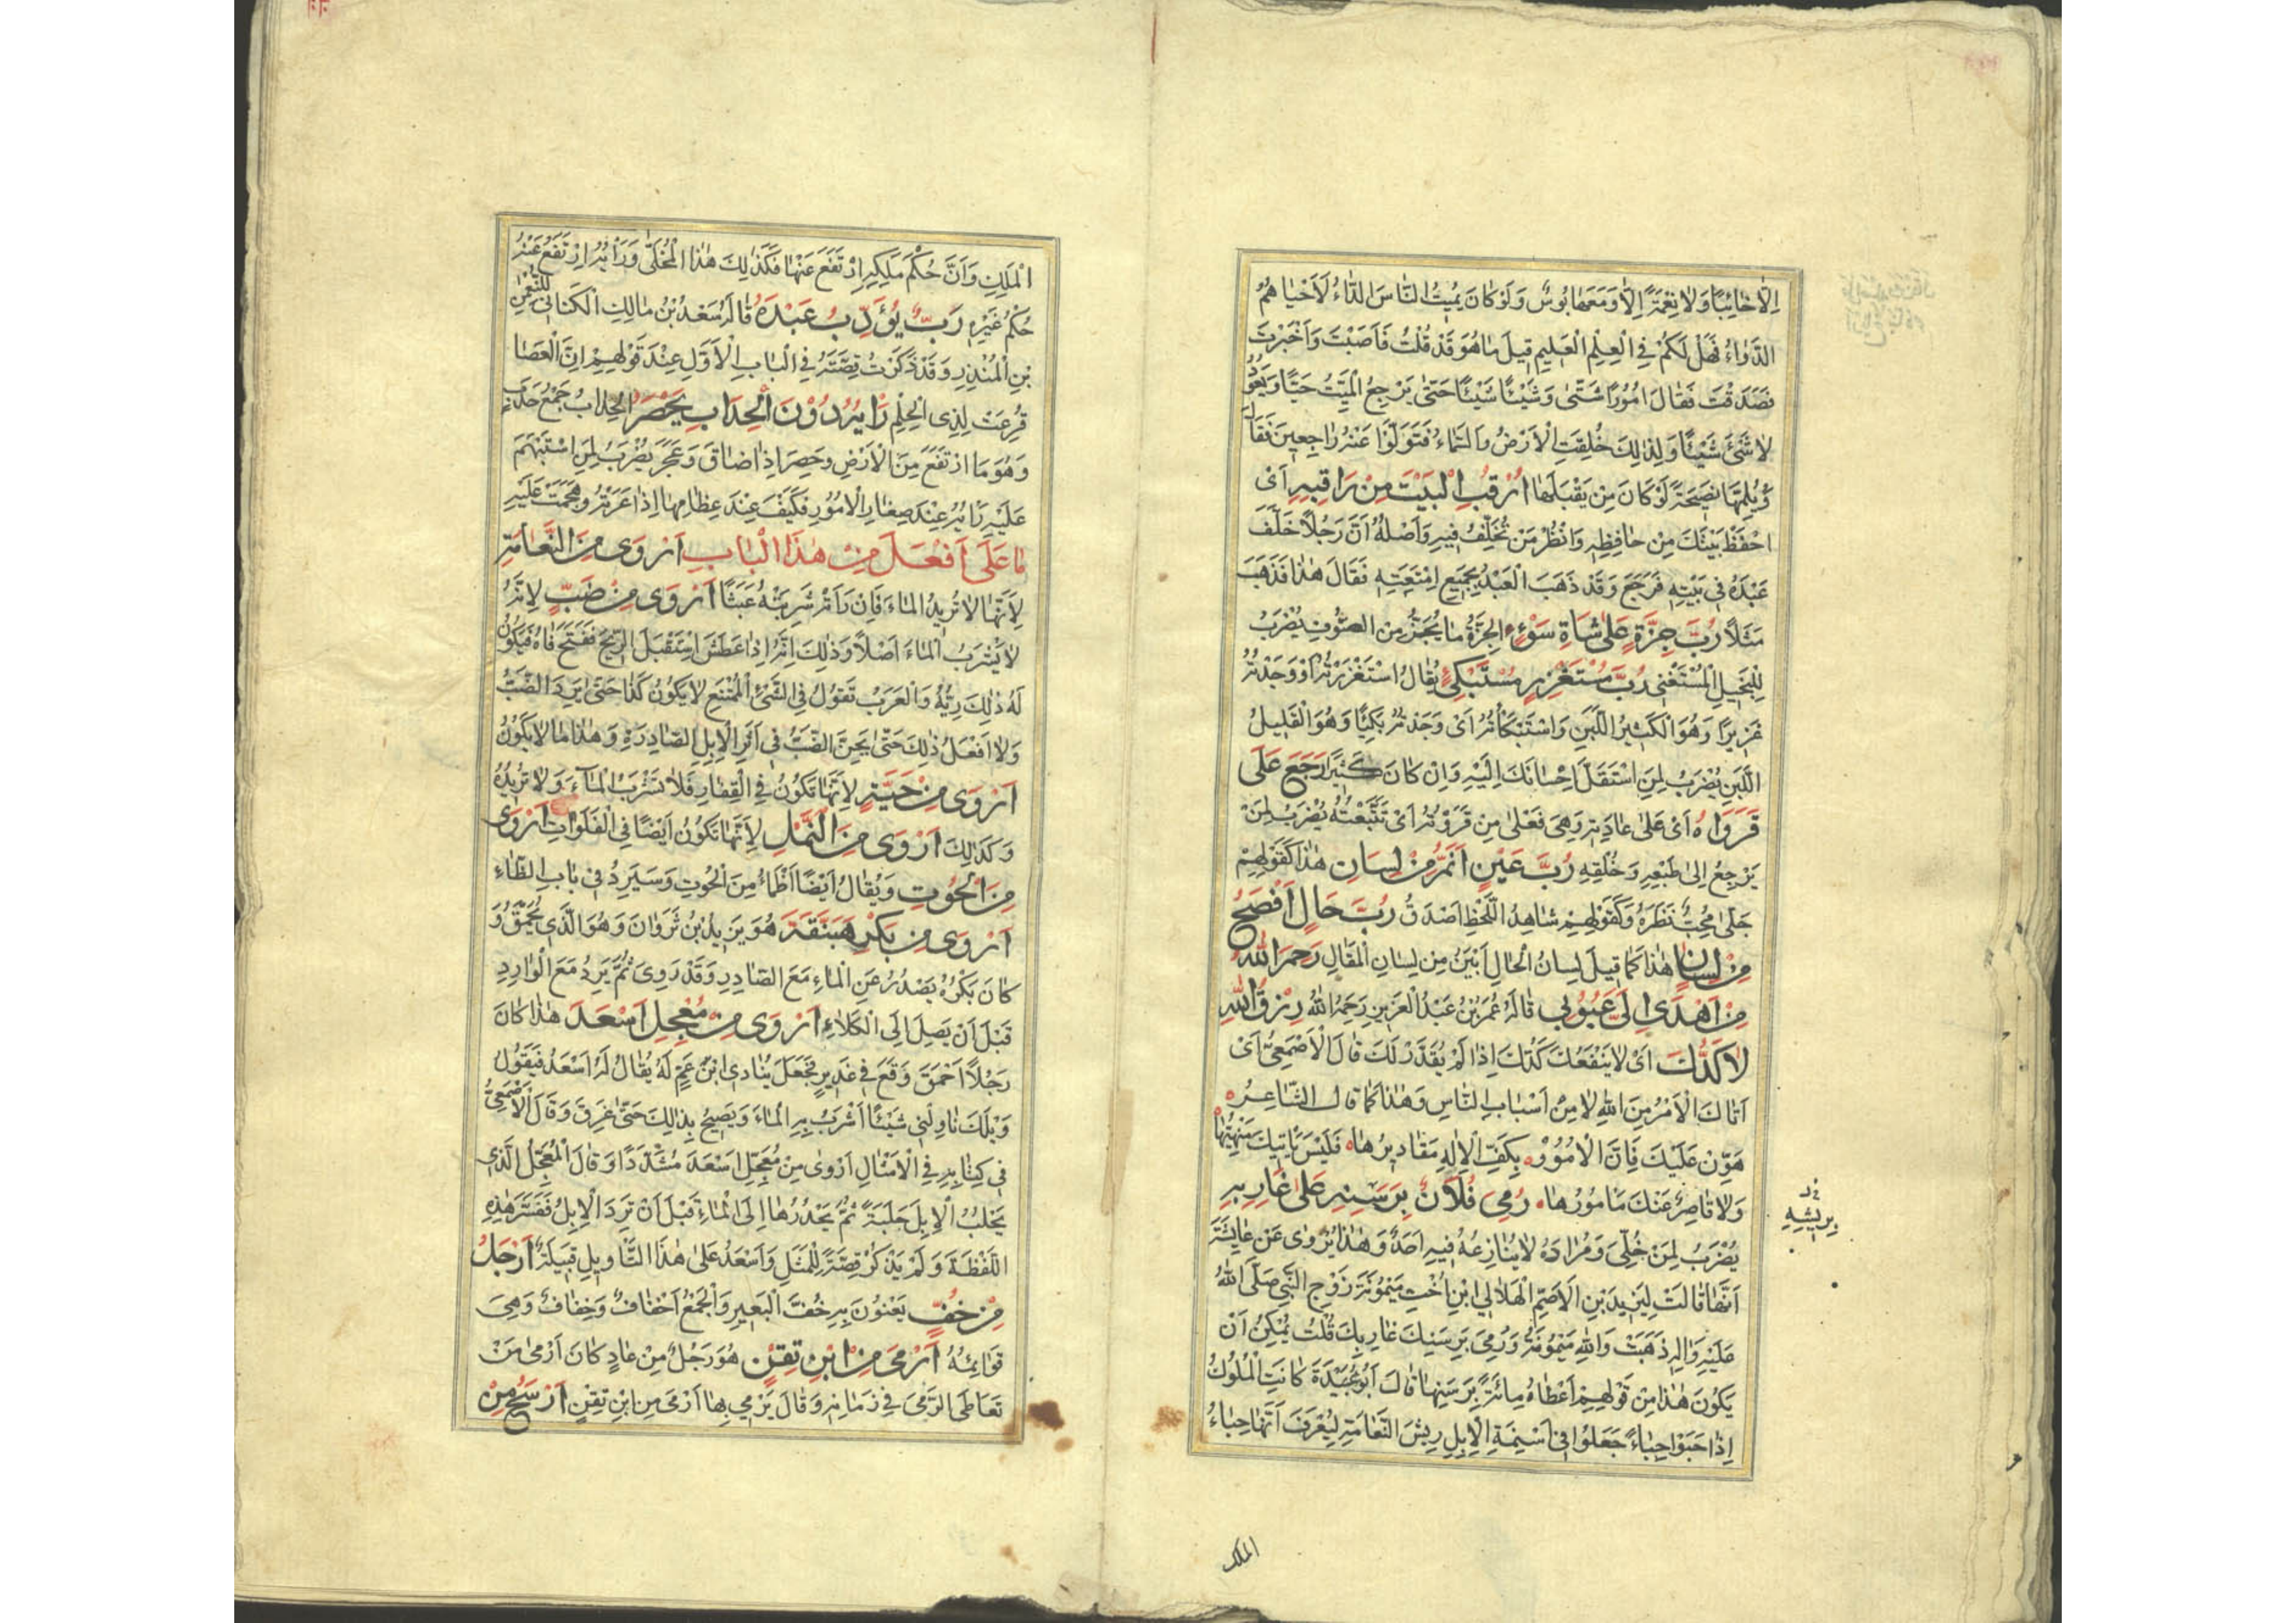 اِلّا خائِبًا وَلا نِعْمَةً اِلّا وَمَعَها بُوسٌ وَلَوْ كانَ يُمِيتُ النّاسَ الدّاءُ لَاَحْياهُمُ
الدَّواءُ فَهَلْ لَكُمْ فِي الْعِلْمِ الْعَلِيمِ قِيلَ ما هُوَ قَدْ قُلْتَ فَاَصَبْتَ وَاَخْبَرْتَ
فَصَدَقْتَ فَقالَ اُمُورًا شَتّى وَشَيْئًا شَيْئًا حَتّى يَرْجِعَ الْمَيِّتُ حَيًّا وَيَعُودُ
لا شَيْءَ شَيْئًا وَلِذلِكَ خُلِقَتِ الْاَرْضُ وَالسَّماءُ فَتَوَلَّوْا عَنْهُ راجِعِينَ فَقالَ
وَيْلُمِّها نَصِيحَةً لَوْ كانَ مِنْ يَقْبَلُها اُرْقُبِ الْبَيْتَ مِنْ راقِبِهِ اَىْ
احْفَظْ بَيْتَكَ مِنْ حافِظِهِ وَانْظُرْ مَنْ تُخَلِّفُ فِيهِ وَاَصْلُهُ اَنَّ رَجُلًا خَلَّفَ
عَبْدَهُ فِي بَيْتِهِ فَرَجَعَ وَقَدْ ذَهَبَ الْعَبْدُ بِجَمِيعِ اَمْتِعَتِهِ فَقالَ هٰذا فَذَهَبَ
مَثَلًا رُبَّ جِزَّةٍ عَلى شاةِ سَوْءٍ الْجِزَّةُ ما يُجَزُّ مِنَ الصُّوفِ يُضْرَبُ
لِلْبَخِيلِ الْمُسْتَغْنِي رُبَّ مُسْتَغْزِرٍ مُسْتَبْكِئٌ يُقالُ اسْتَغْزَرْتُهُ اَوْ وَجَدْتُهُ
غَزِيرًا وَهُوَ الْكَثِيرُ اللَّبَنِ وَاسْتَبْكَأْتُهُ اَىْ وَجَدْتُهُ بَكِيًّا وَهُوَ الْقَلِيلُ
اللَّبَنِ يُضْرَبُ لِمَنِ اسْتَقَلَّ اِحْسانَكَ اِلَيْهِ وَاِنْ كانَ كَثِيرًا رَجَعَ عَلى
قَرْواهُ اَىْ عَلى عادَتِهِ وَهِىَ فَعْلى مِنْ قَرَوْتُهُ اَىْ تَتَبَّعْتُهُ يُضْرَبُ لِمَنْ
يَرْجِعُ اِلى طَبْعِهِ وَخُلُقِهِ رُبَّ عَيْنٍ اَنَمُّ مِنْ لِسانٍ هٰذا كَقَوْلِهِمْ
جَلّى مُحِبٌّ نَظَرَهُ وَكَقَوْلِهِمْ شاهِدُ اللَّحْظِ اَصْدَقُ رُبَّ حالٍ اَفْصَحُ
مِنْ لِسانٍ هٰذا كَما قِيلَ لِسانُ الْحالِ اَبْيَنُ مِنْ لِسانِ الْمَقالِ رَحِمَ اللهُ
مَنْ اَهْدى اِلَيَّ عُيُوبِي قالَهُ عُمَرُ بْنُ عَبْدِ الْعَزِيزِ رَحِمَهُ اللهُ رِزْقُ اللهِ
لا كَدُّكَ اَىْ لا يَنْفَعُكَ كَدُّكَ اِذا لَمْ يُقَدَّرْ لَكَ قالَ الْاَصْمَعِيُّ اَىْ
اَتاكَ الْاَمْرُ مِنَ اللهِ لا مِنْ اَسْبابِ النّاسِ وَهٰذا كَما قالَ الشّاعِرُ
هَوِّنْ عَلَيْكَ فَاِنَّ الْاُمُورَ بِكَفِّ الْاِلٰهِ مَقادِيرُها فَلَيْسَ يَاتِيكَ مَنْهِيُّها
وَلا قاصِرٌ عَنْكَ مَامُورُها رُمِيَ فُلانٌ بِرَسَنِهِ عَلى غارِبِهِ
يُضْرَبُ لِمَنْ خُلِّىَ وَمُرادَهُ لا يُنازِعُهُ فِيهِ اَحَدٌ وَهٰذا يُرْوى عَنْ عايِشَةَ
اَنَّها قالَتْ لِيَزِيدَ بْنِ الْاَصَمِّ الْهِلالِي ابْنِ اُخْتِ مَيْمُونَةَ زَوْجِ النَّبِيِّ صَلَّى اللهُ
عَلَيْهِ وَالِهِ ذَهَبَتْ وَاللهِ مَيْمُونَةُ وَرُمِيَ بِرَسَنِكَ غارِبِكَ قُلْتُ يُمْكِنُ اَنْ
يَكُونَ هٰذا مِنْ قَوْلِهِمْ اَعْطاهُ مِائَةً بِرَسَنِها قالَ اَبُو عُبَيْدَةَ كانَتِ الْمُلُوكُ
اِذا حَبَوْا حِباءً جَعَلُوا فِي اَسْنِمَةِ الْاِبِلِ رِيشَ النَّعامَةِ لِيُعْرَفَ اَنَّها حِباءُ
بِرِيشِهِ
الملك
الْمَلِكِ وَاَنَّ حُكْمَ مَلِكِهِ ارْتَفَعَ عَنْها فَكَذلِكَ هٰذا الْمُخَلّى وَرَأْيُهُ ارْتَفَعَ عَنْهُ
حُكْمُ غَيْرِهِ رَبٌّ يُؤَدِّبُ عَبْدَهُ قالَهُ سَعْدُ بْنُ مالِكٍ الْكَنانِي لِلنُّعْمنِ
بْنِ الْمُنْذِرِ وَقَدْ ذَكَرْتُ قِصَّتَهُ فِي الْبابِ الْاَوَّلِ عِنْدَ قَوْلِهِمْ اِنَّ الْعَصا
قُرِعَتْ لِذِى الْحِلْمِ رَأْيُهُ دُوْنَ الْحِدابِ يَحْصَرُ الْحِدابُ جَمْعُ حَدَبٍ
وَهُوَ مَا ارْتَفَعَ مِنَ الْاَرْضِ وَحَصِرَ اِذا ضاقَ وَعَجَزَ يُضْرَبُ لِمَنِ اسْتَبْهَمَ
عَلَيْهِ رَأْيُهُ عِنْدَ صِغارِ الْاُمُورِ فَكَيْفَ عِنْدَ عِظامِها اِذا عَرَتْهُ وَهَجَمَتْ عَلَيْهِ
ما عَلى اَفْعَلَ مِنْ هٰذَا الْبابِ اَرْوى مِنَ النَّعامَةِ
لِاَنَّها لا تُرِيدُ الْماءَ فَاِنْ رَاَتْهُ شَرِبَتْهُ عَبَثًا اَرْوى مِنْ ضَبٍّ لِاَنَّهُ
لا يَشْرَبُ الْماءَ اَصْلًا وَذلِكَ اِنَّهُ اِذا عَطَشَ اسْتَقْبَلَ الرِّيحَ فَفَتَحَ فاهُ فَيَكُونُ
لَهُ ذلِكَ رِيَّهُ وَالْعَرَبُ تَقُولُ فِي الشَّيْءِ الْمُمْتَنِعِ لا يَكُونُ كَذا حَتّى يَرِدَ الضَّبُّ
وَلا اَفْعَلُ ذلِكَ حَتّى يَحِنَّ الضَّبُّ فِي اَثَرِ الْاِبِلِ الصّادِرَةِ وَهٰذا ما لا يَكُونُ
اَرْوى مِنْ حَيَّةٍ لِاَنَّها تَكُونُ فِي الْقِفارِ فَلا تَشْرَبُ الْماءَ وَلا تُرِيدُهُ
وَكَذلِكَ اَرْوى مِنَ النَّمْلِ لِاَنَّها تَكُونُ اَيْضًا فِي الْفَلَواتِ اَرْوى
مِنَ الْحُوتِ وَيُقالُ اَيْضًا اَظْمَاُ مِنَ الْحُوتِ وَسَيَرِدُ فِي بابِ الظّاءِ
اَرْوى مِنْ بَكْرِ هَبَنَّقَةَ هُوَ يَزِيدُ بْنُ ثَرْوانَ وَهُوَ الَّذِي يُحَمَّقُ وَ
كانَ بَكْرُهُ يَصْدُرُ عَنِ الْماءِ مَعَ الصّادِرِ وَقَدْ رَوِىَ ثُمَّ يَرِدُ مَعَ الْوارِدِ
قَبْلَ اَنْ يَصِلَ اِلَى الْكَلَاءِ اَرْوى مِنْ مُعْجِلِ اَسْعَدَ هٰذا كانَ
رَجُلًا اَحْمَقَ وَقَعَ فِي غَدِيرٍ فَجَعَلَ يُنادِي ابْنَ عَمٍّ لَهُ يُقالُ لَهُ اَسْعَدُ فَيَقُولُ
وَيْلَكَ ناوِلْنِي شَيْئًا اَشْرَبُ بِهِ الْماءَ وَيَصِيحُ بِذلِكَ حَتّى غَرِقَ وَقالَ الْاَصْمَعِيُّ
فِي كِتابِهِ فِي الْاَمْثالِ اَرْوى مِنْ مُعَجِّلِ اَسْعَدَ مُشَدَّدًا وَقالَ الْمُعَجِّلُ الَّذِي
يَحْلِبُ الْاِبِلَ حَلْبَةً ثُمَّ يَحْدُرُها اِلَى الْماءِ قَبْلَ اَنْ تَرِدَ الْاِبِلُ فَفَسَّرَ هٰذِهِ
اللَّفْظَةَ وَلَمْ يَذْكُرْ قِصَّةً لِلْمَثَلِ وَاَسْعَدُ عَلى هٰذَا التَّأوِيلِ قَبِيلَةٌ اَرْجَلُ
مِنْ خُفٍّ يَعْنُونَ بِهِ خُفَّ الْبَعِيرِ وَالْجَمْعُ اَخْفافٌ وَخِفافٌ وَهِىَ
قَوائِمُهُ اَرْمى مِنْ ابْنِ تِقْنٍ هُوَ رَجُلٌ مِنْ عادٍ كانَ اَرْمى مَنْ
تَعاطَى الرَّمْىَ فِي زَمانِهِ وَقالَ يَرْمِي بِها اَرْمى مِنِ ابْنِ تِقْنٍ اَرْسَحُ مِنْ